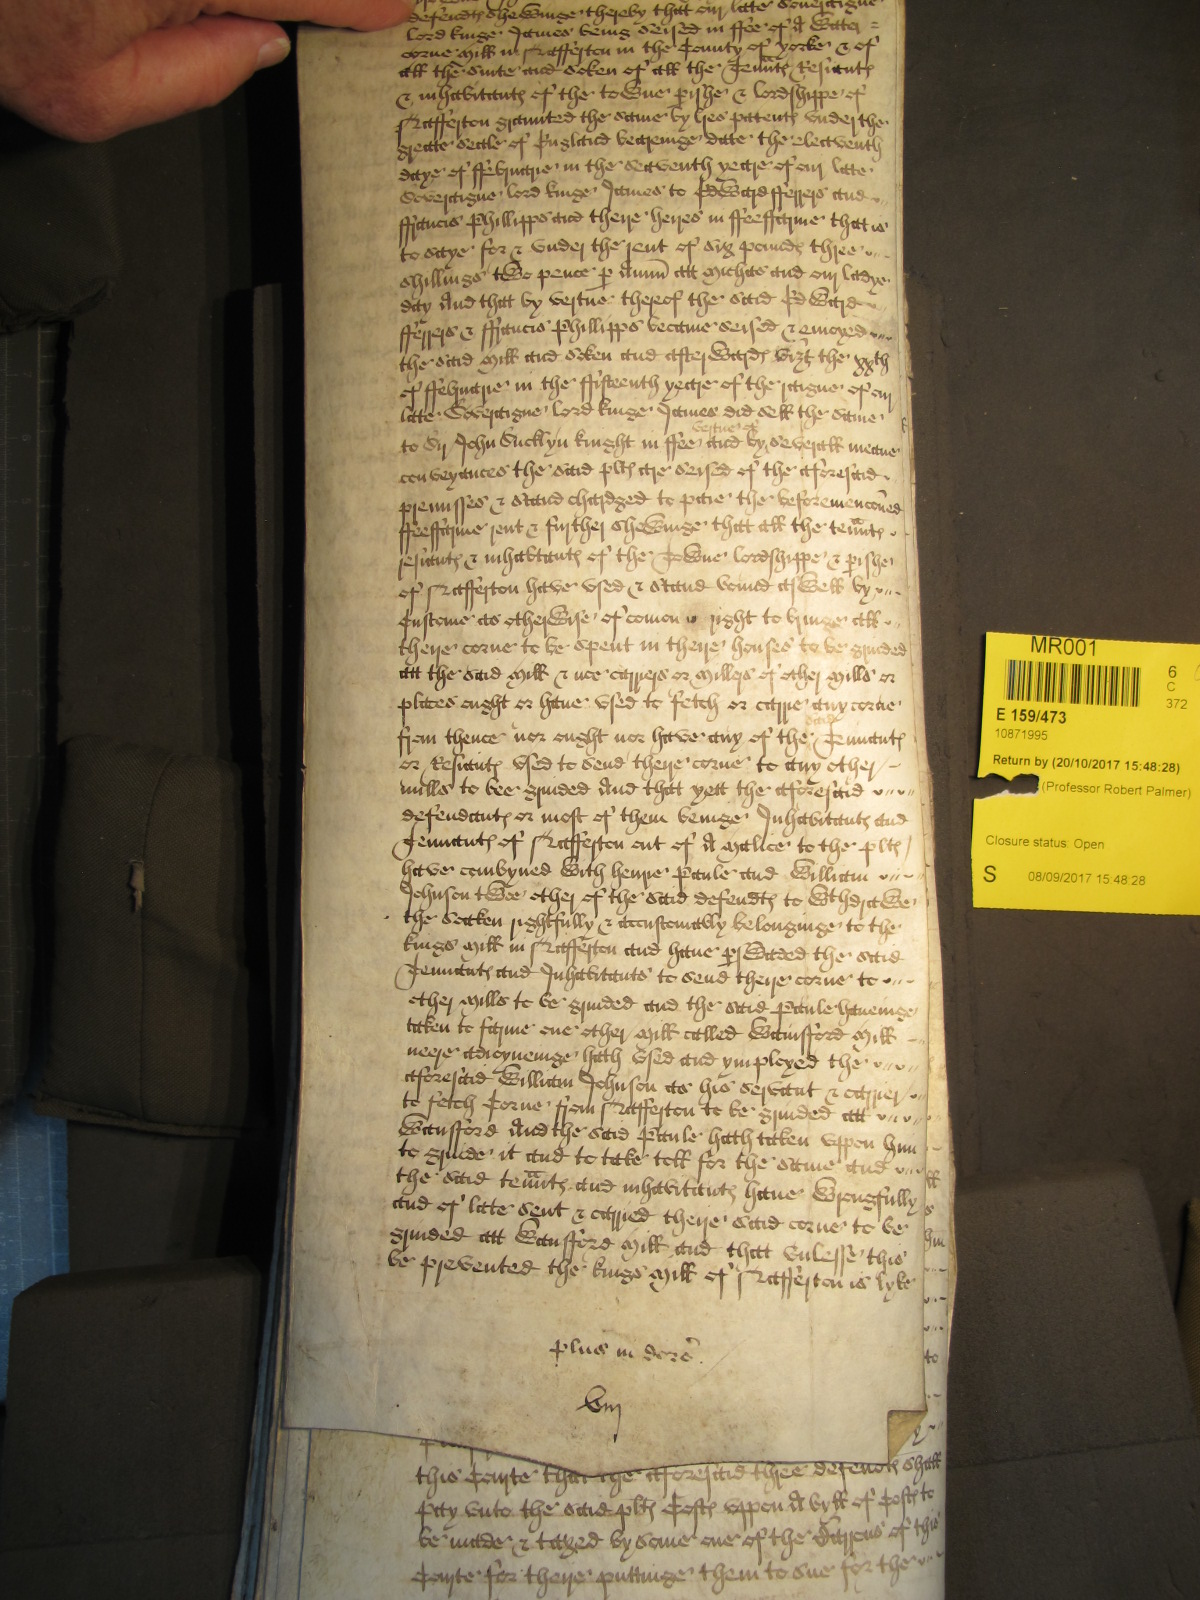 defendts shewinge thereby that our late Soveraigne
lord kinge James being seised in ffee of A water =
corne Mill in Nafferton in the County of yorke & of
all the suite and soken of all the Tennts Resiants
& inhabitants of the towne p'ishe & lordshippe of
Nafferton graunted the same by his patents under the
greate seale of England beareinge date the eleaventh
daye of ffebruarie in the seaventh yeare of our late
Soveraigne lord kinge James to Edward fferrers and
ffrancis Phillipps and theire heires in ffeeffarme that is
to saye for & under the rent of six pounds three
shillings two pence p Annu att Michas and our Ladye
day And that by vertue thereof the said Edward
fferrers & ffrancis Phillipps became seised & enioyed
the said Mill and soken and afterwards vizt the xxth
of ffebruarie in the ffifteenth yeare of the raigne of our
late Soveraigne lord kinge James did sell the same
to Sir John Sucklyn knight in ffee and by vertue of severall meane
conveyances the said plts are seised of the aforesaid
premisses & stand chardged to paie the beforemenconed
ffeeffarme rent & further shewinge that all the tennts
resiants & inhabtants of the Towne lordshippe & p'ishe
of Nafferton have used & stand bound aswell by
Custome as otherwise of comon right to bringe all
theire corne to be spent in theire houses to be grinded
att the said Mill & noe carriers or millers of other Mills or
places ought or have used to fetch or carrie any corne
from thence nor ought nor have any of the said Tennants
or Resiants used to send theire corne to any other
mills to bee grinded And that yett the aforesaid
defendants or most of them beinge Inhabitants and
Tennants of Nafferton out of A malice to the plts
have combyned with henrie Paule and William
Johnson twoe other of the said defendts to withdrawe
the soaken rightfully & accustomably belonginge to the
kings Mill in Nafferton and have p'swaded the said
Tennants and Inhabitants to send theire corne to
other Mills to be grinded and the said Paule haveinge
taken to farme one other Mill called Wansford Mill
neere adioyneinge hath used and ymployed the
aforesaid William Johnson as his servant & carrier
to fetch Corne from Nafferton to be grinded att
Wansford And the said Paule hath taken uppon him
to grinde it and to take toll for the same and
the said tennts and inhabitants have wrongfully
and of late sent & carried theire said corne to be
grinded att Wansford Mill and that unlesse this
be prevented the kings Mill of Nafferton is lyke
Plus in dors'
viij
this Courte that the aforesaid three defendts shall
pay unto the said plts Costs uppon A byll of Costs to
be made & taxed by some one of the Barons of this
Courte for theire puttinge them to sue for the
MR001
6
C
372
E 159/473
10871995
Return by (20/10/2017 15:48:28)
(Professor Robert Palmer)
Closure status: Open
S
08/09/2017 15:48:28